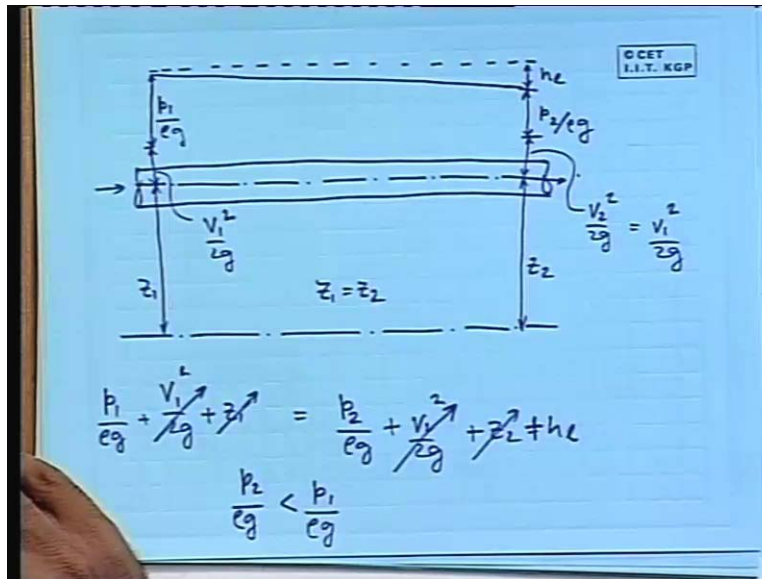 © CET
I.I.T. KGP
he
p₁/ρg
p₂/ρg
V₁²/2g
V₂²/2g = V₁²/2g
z₁
z₁ = z₂
z₂
p₁/ρg + V₁²/2g + z₁ = p₂/ρg + V₁²/2g + z₂ + he
p₂/ρg < p₁/ρg